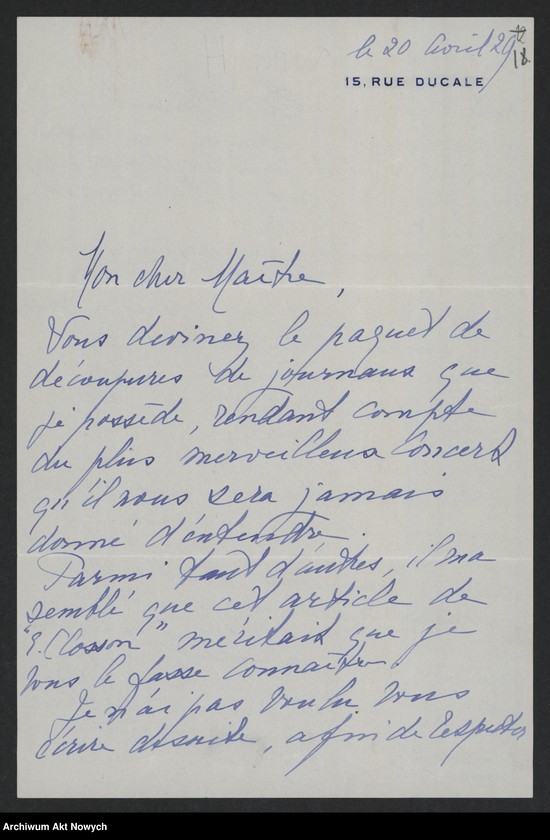 le 20 Avril 29
18
15, RUE DUCALE
Mon cher Maître,
Vous devinez le paquet de
découpures de journaux que
je possède, rendant compte
du plus merveilleux Concert
qu'il nous sera jamais
donné d'entendre.
Parmi tant d'autres, il m'a
semblé que cet article de
"E. Closson" méritait que je
vous le fasse connaître.
Je n'ai pas voulu vous
écrire de suite, afin de respecter
Archiwum Akt Nowych